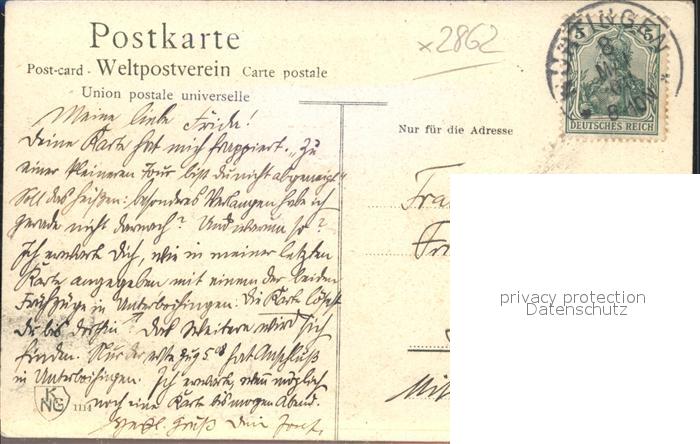 Postkarte
x2862
Post-card - Weltpostverein Carte postale
Union postale universelle
NÜRTINGEN
8
MAI
8-10N
5 5
DEUTSCHES REICH
Nur für die Adresse
Meine liebe Frida!
Deine Karte hat mich frappiert. „Zu
einer kleineren Tour bist du nicht abgeneigt"
soll das heißen: besonderes Verlangen habe ich
gerade nicht darnach? Und warum so?
Ich erwarte Dich, wie in meiner letzten
Karte angegeben mit einem der beiden
Frühzüge in Unterboihingen. Die Karte lösest
du bis dorthin. Das Weitere wird sich
finden. Nur der erste Zug 5 hat Anschluß
in Unterboihingen. Ich erwarte, wenn möglich
noch eine Karte bis morgen Abend.
Herzl. Gruß Dein
KNG
1114
Fra
Fri
Mit
privacy protection
Datenschutz